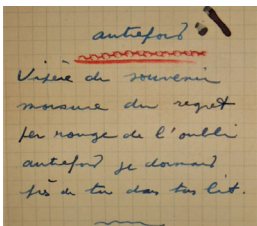 autrefois
Vipère du souvenir
morsure du regret
fer rouge de l'oubli
autrefois je dormais
près de toi dans ton lit.